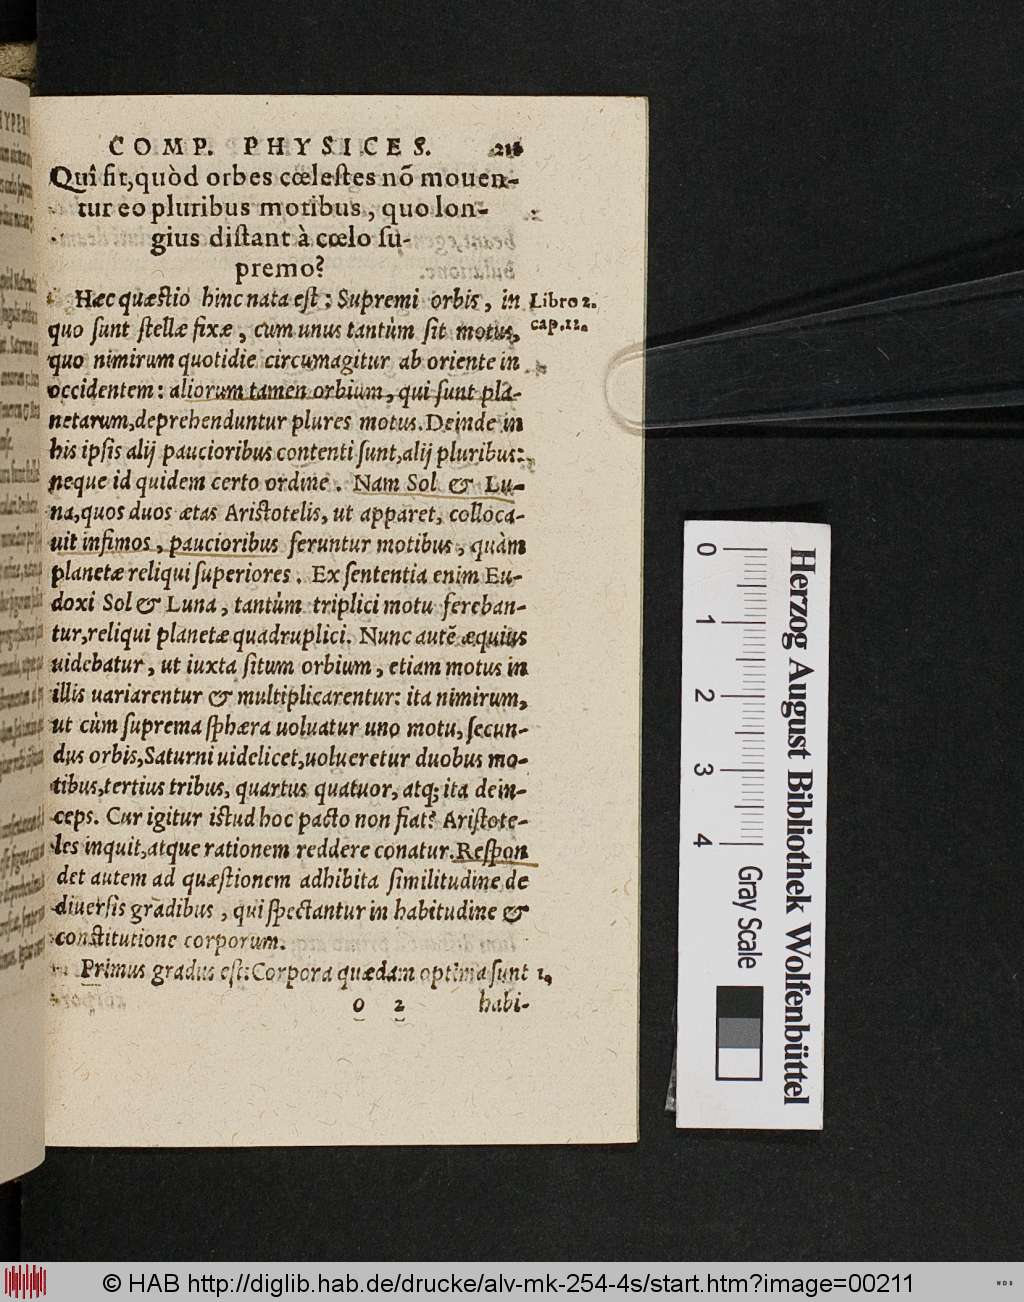 COMP. PHYSICES. 211
Quî fit, quòd orbes cœlestes nõ mouen-
tur eo pluribus motibus, quo lon-
gius distant à cœlo su-
premo?
Hæc quæstio hinc nata est: Supremi orbis, in
Libro 2.
quo sunt stellæ fixæ, cum unus tantùm sit motus,
cap. 12.
quo nimirum quotidie circumagitur ab oriente in
occidentem: aliorum tamen orbium, qui sunt pla-
netarum, deprehenduntur plures motus. Deinde in
his ipsis alij paucioribus contenti sunt, alij pluribus:
neque id quidem certo ordine. Nam Sol & Lu-
na, quos duos ætas Aristotelis, ut apparet, colloca-
uit infimos, paucioribus feruntur motibus, quàm
planetæ reliqui superiores. Ex sententia enim Eu-
doxi Sol & Luna, tantùm triplici motu fereban-
tur, reliqui planetæ quadruplici. Nunc autẽ æquius
uidebatur, ut iuxta situm orbium, etiam motus in
illis uariarentur & multiplicarentur: ita nimirum,
ut cùm suprema sphæra uoluatur uno motu, secun-
dus orbis, Saturni uidelicet, uolueretur duobus mo-
tibus, tertius tribus, quartus quatuor, atq; ita dein-
ceps. Cur igitur istud hoc pacto non fiat? Aristote-
les inquit, atque rationem reddere conatur. Respon
det autem ad quæstionem adhibita similitudine de
diuersis gradibus, qui spectantur in habitudine &
constitutione corporum.
Primus gradus est: Corpora quædam optima sunt 1,
o 2 habi-
0 1 2 3 4
Herzog August Bibliothek Wolfenbüttel
Gray Scale
© HAB http://diglib.hab.de/drucke/alv-mk-254-4s/start.htm?image=00211